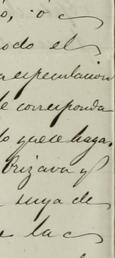 o, o
odo el
a especulacion
le corresponda
lo que se haga,
Orizava y
suya de
e la